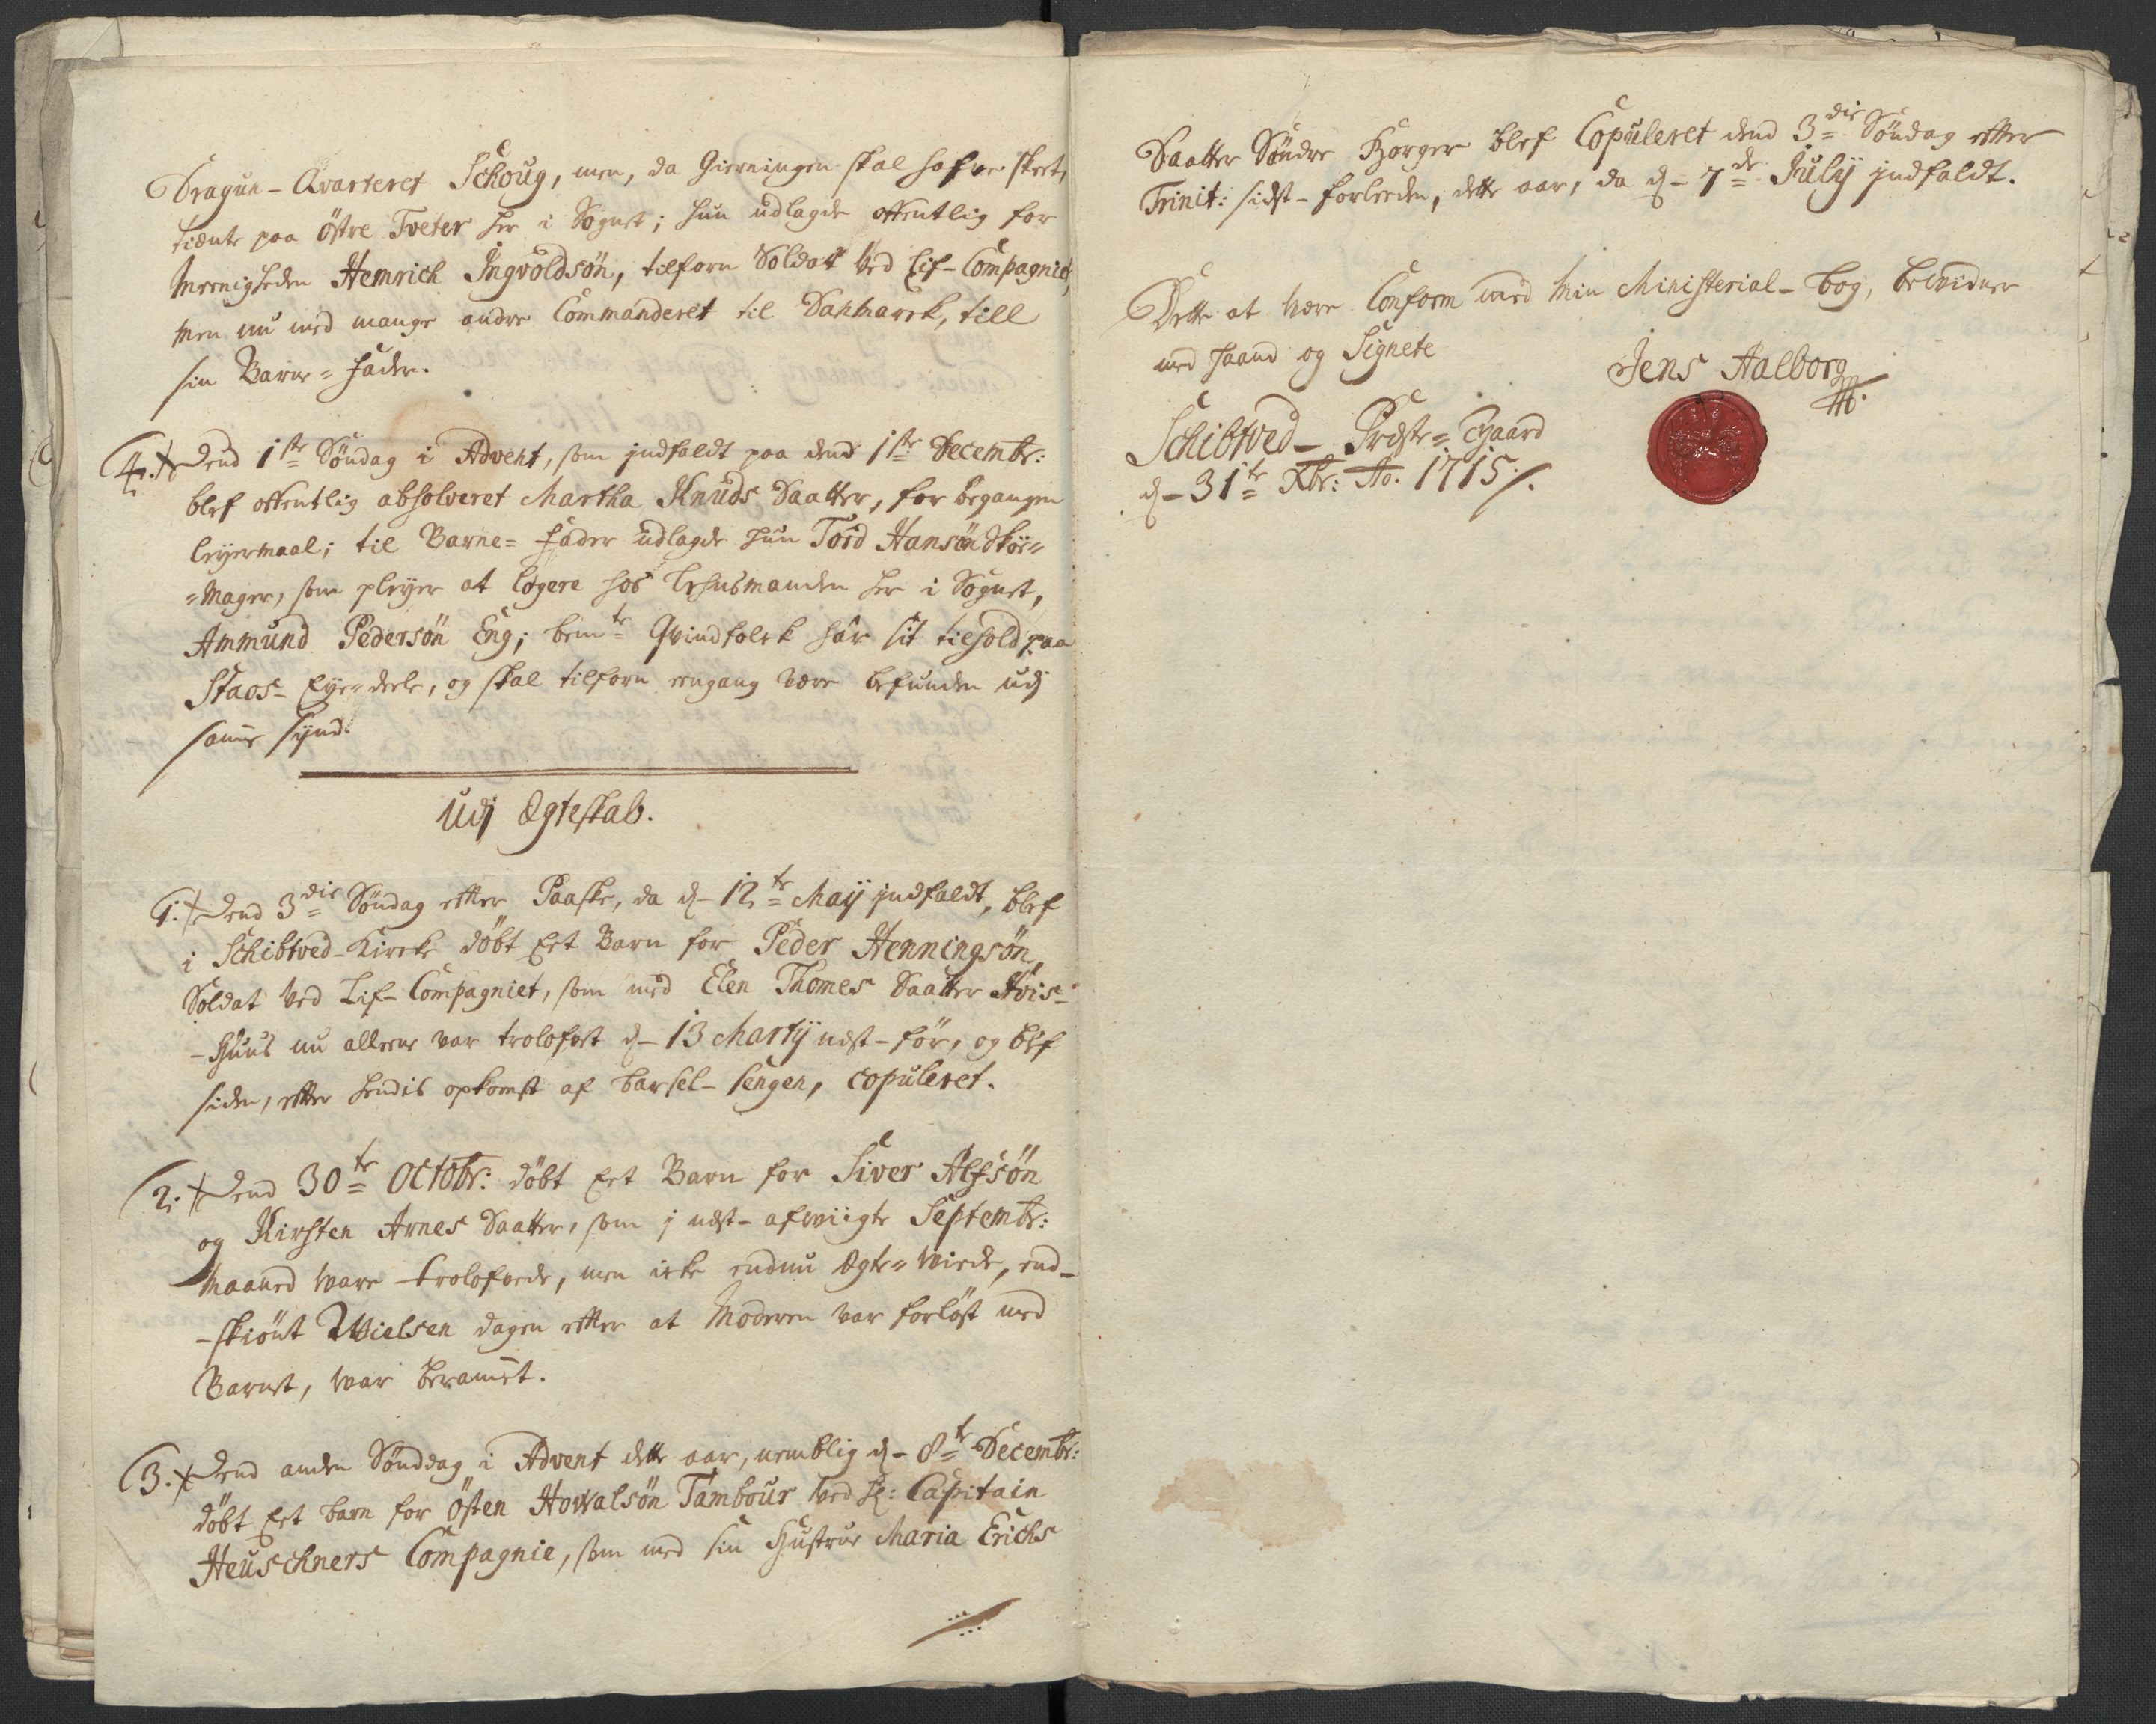 Dragun-Qvarteret Schoug, men, da Gierningen skal hafve skeet,
tiente paa Östre Tveter her i Sognet; hun udlagde offentlig for
Meenigheden Hemrich Ingvoldsön, tilforn Soldatt ved Lif-Compagniet,
men nu med mange andre Commanderet til Danmarck, till
sin Barne-fader.
4. Dend 1ste Söndag i Advent, som indfaldt paa dend 1ste Decembr:
blef offentlig absolveret Martha Knuds Daatter, for begangen
leyermaal; til Barne-fader udlagde hun Tord Hansön Skoe-
=mager, som pleyer at logere hos Lehnsmanden her i Sognet,
Ammund Pedersön Eng; bemte Qvindfolck har sit tilhold paa
Staos- Eye-deele, og skal tilforn eengang være befunden udj
samme synd.
Udj Ægteskab.
1. Dend 3die Söndag efter Paaske, da d- 12te Maij jndfaldt, blef
i Schibtved-Kircke döbt Eet Barn for Peder Henningsön,
Soldat ved Lif-Compagniet, som med Elen Thomes Daatter Hvis-
-Huus nu alleene var trolofvet d- 13 Martij næst-för, og blef
siden, efter hendis opkomst af barsel-sengen, copuleret.
2. Dend 30te Octobr: döbt Eet Barn for Siver Alfsön
og Kirsten Arnes Daatter, som j næst-afviigte Septembr:
Maaned vare trolofvede, men icke endnu Ægte-viede, end-
-skiönt Vielsen dagen efter at Moderen var forlöst med
Barnet, var berammet.
3. Dend anden Sönddag i Advent dette aar, nemblig d- 8te Decembr:
döbt Eet barn for Östen Howalsön Tambour ved Hr: Capitain
Heuschners Compagnie, som med sin Hustrue Maria Erichs
Daatter Söndre Horger blef Copuleret dend 3die Söndag efter
Trinit: sidst-forleeden, dette aar, da d- 7de Julij jndfaldt.
Dette at være Conform med min Ministerial-bog, bevidner
med haand og Signete
Jens Aalborg
Schibtved- Præste-Gaard
d- 31te Xbr: Ao. 1715.